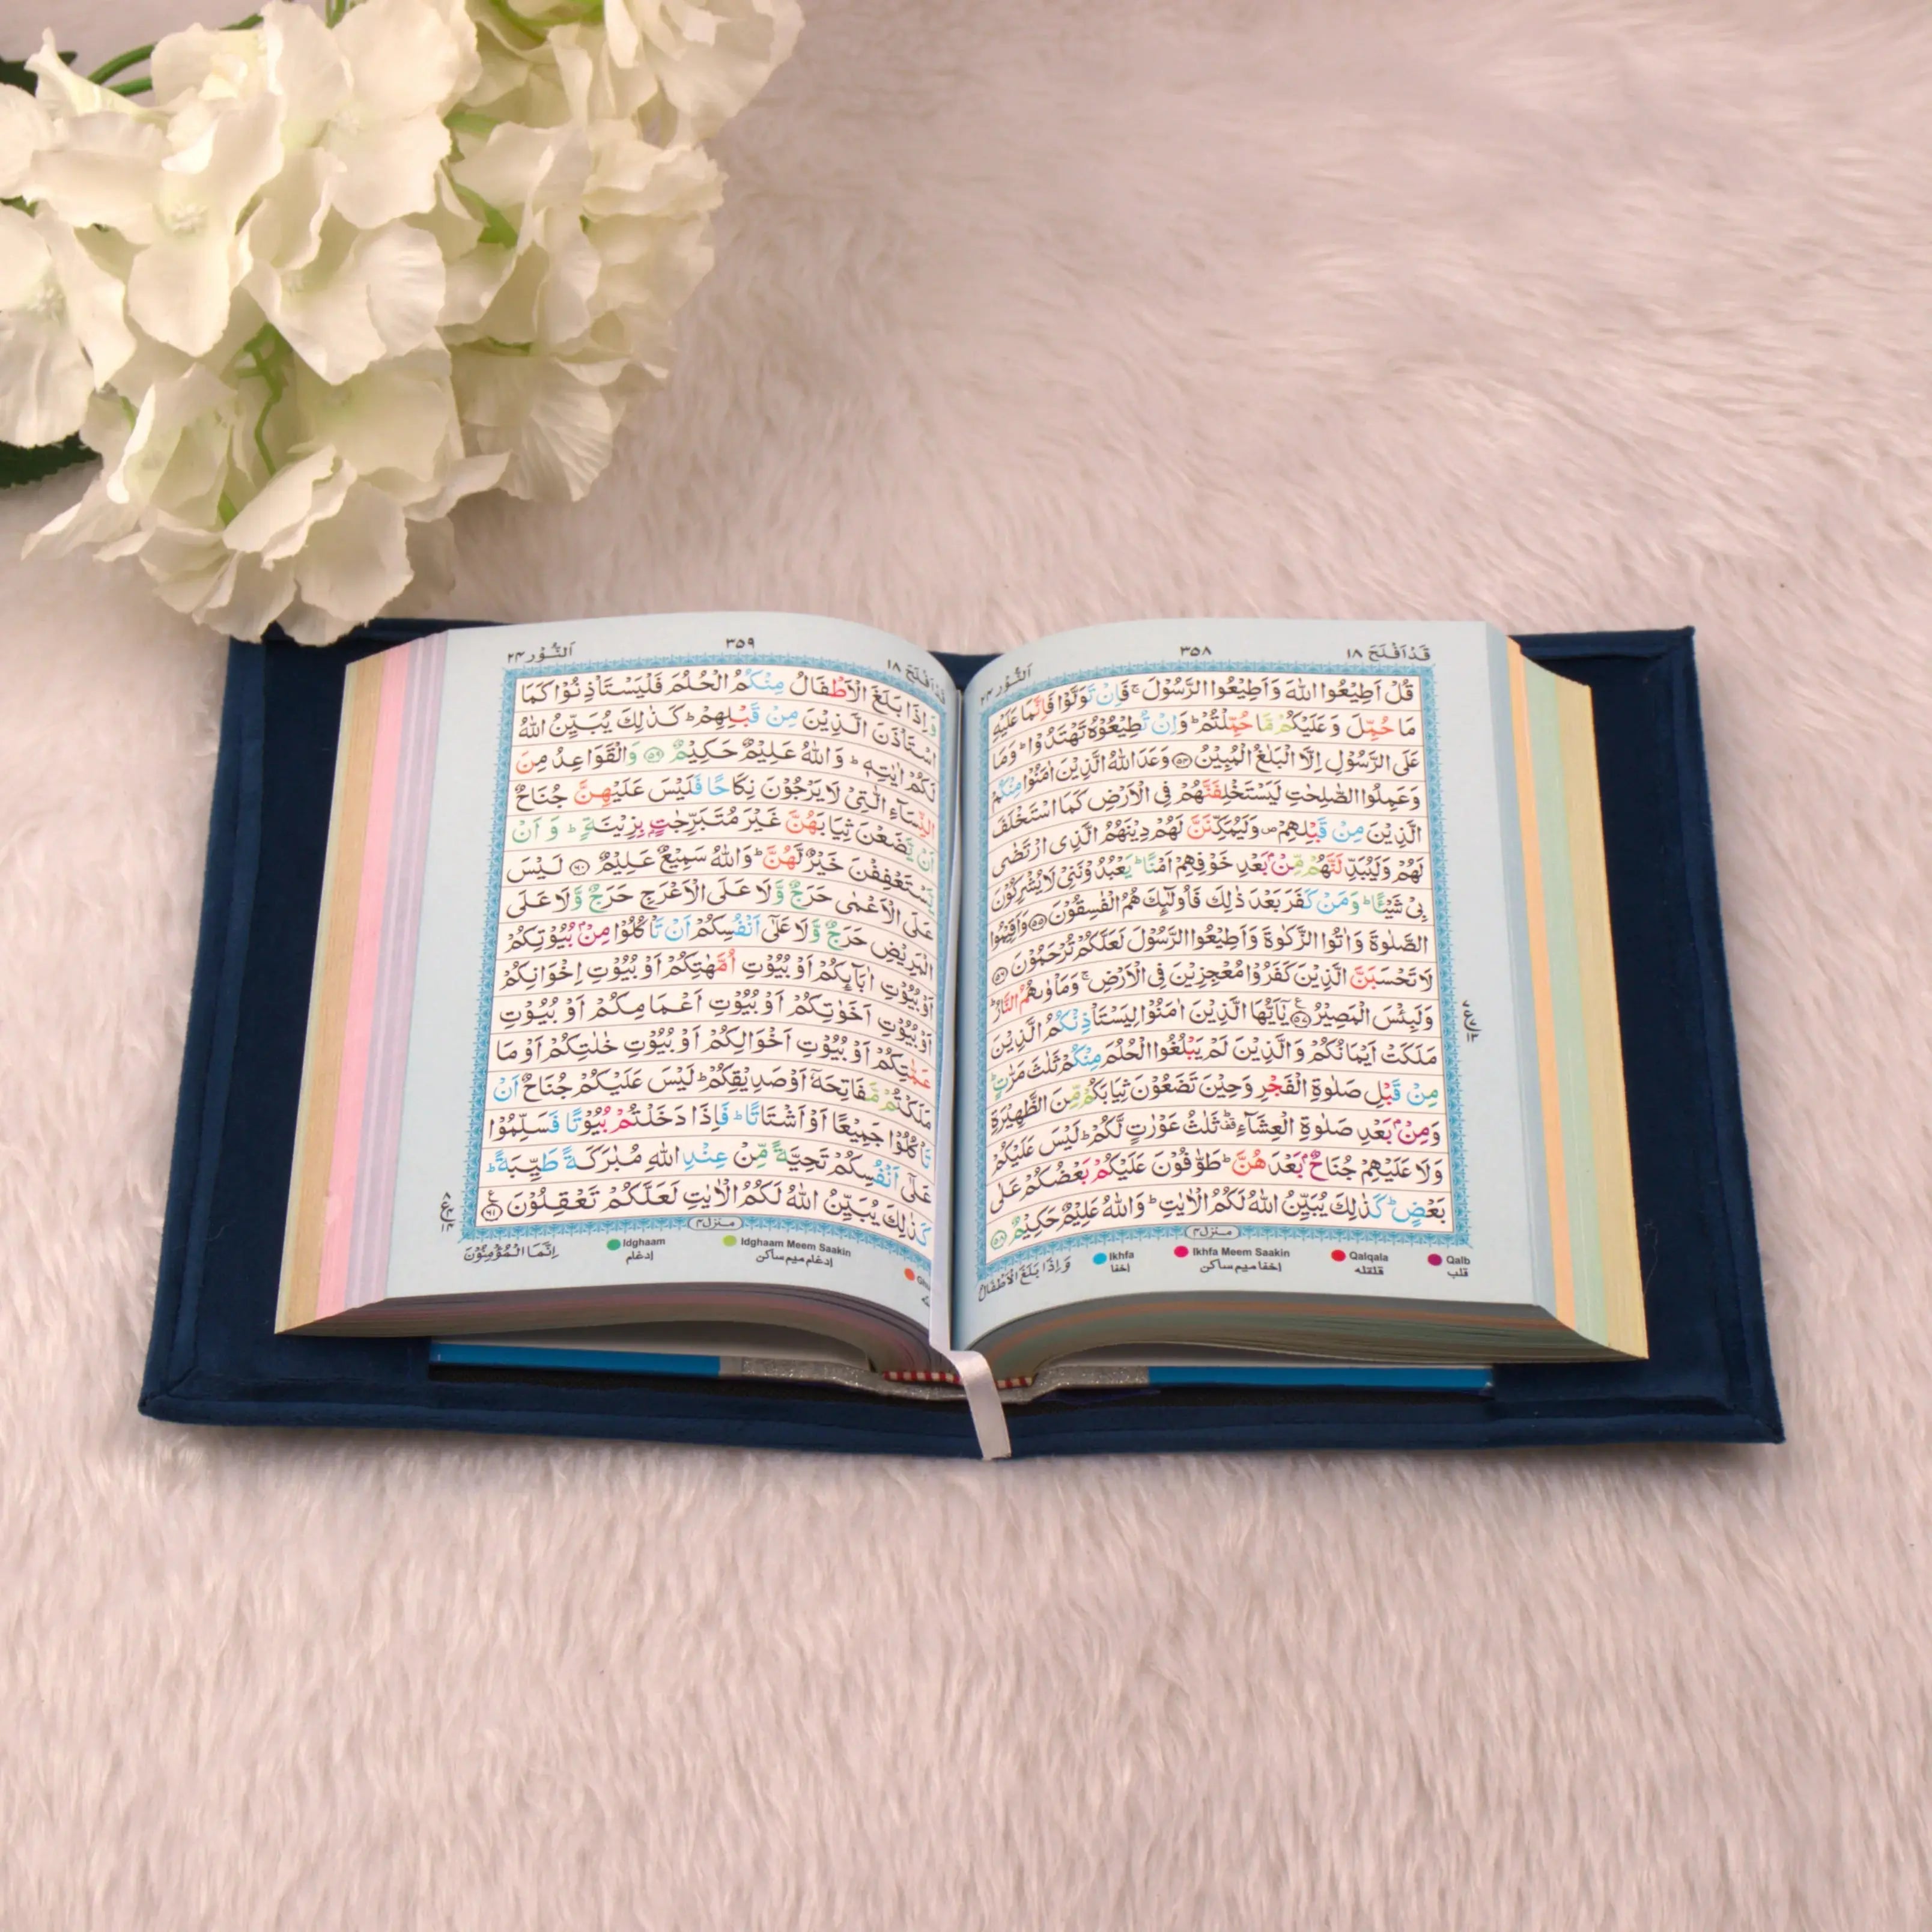 قَدْ اَفْلَحَ ١٨
٣٥٨
اَلنُّوْر ٢٤
قُلْ اَطِيْعُوا اللّٰهَ وَاَطِيْعُوا الرَّسُوْلَ ۚ فَاِنْ تَوَلَّوْا فَاِنَّمَا عَلَيْهِ
مَا حُمِّلَ وَعَلَيْكُمْ مَّا حُمِّلْتُمْ ؕ وَاِنْ تُطِيْعُوْهُ تَهْتَدُوْا ؕ وَمَا
عَلَى الرَّسُوْلِ اِلَّا الْبَلٰغُ الْمُبِيْنُ ۝٥٤ وَعَدَ اللّٰهُ الَّذِيْنَ اٰمَنُوْا مِنْكُمْ
وَعَمِلُوا الصّٰلِحٰتِ لَيَسْتَخْلِفَنَّهُمْ فِى الْاَرْضِ كَمَا اسْتَخْلَفَ
الَّذِيْنَ مِنْ قَبْلِهِمْ ۪ وَلَيُمَكِّنَنَّ لَهُمْ دِيْنَهُمُ الَّذِى ارْتَضٰى
لَهُمْ وَلَيُبَدِّلَنَّهُمْ مِّنْۢ بَعْدِ خَوْفِهِمْ اَمْنًا ؕ يَعْبُدُوْنَنِىْ لَا يُشْرِكُوْنَ
بِىْ شَيْـًٔا ؕ وَمَنْ كَفَرَ بَعْدَ ذٰلِكَ فَاُولٰٓئِكَ هُمُ الْفٰسِقُوْنَ ۝٥٥ وَاَقِيْمُوا
الصَّلٰوةَ وَاٰتُوا الزَّكٰوةَ وَاَطِيْعُوا الرَّسُوْلَ لَعَلَّكُمْ تُرْحَمُوْنَ ۝٥٦
لَا تَحْسَبَنَّ الَّذِيْنَ كَفَرُوْا مُعْجِزِيْنَ فِى الْاَرْضِ ۚ وَمَاْوٰىهُمُ النَّارُ ؕ
وَلَبِئْسَ الْمَصِيْرُ ۝٥٧ يٰۤاَيُّهَا الَّذِيْنَ اٰمَنُوْا لِيَسْتَاْذِنْكُمُ الَّذِيْنَ
مَلَكَتْ اَيْمَانُكُمْ وَالَّذِيْنَ لَمْ يَبْلُغُوا الْحُلُمَ مِنْكُمْ ثَلٰثَ مَرّٰتٍ ؕ
مِنْ قَبْلِ صَلٰوةِ الْفَجْرِ وَحِيْنَ تَضَعُوْنَ ثِيَابَكُمْ مِّنَ الظَّهِيْرَةِ
وَمِنْۢ بَعْدِ صَلٰوةِ الْعِشَآءِ ۫ؕ ثَلٰثُ عَوْرٰتٍ لَّكُمْ ؕ لَيْسَ عَلَيْكُمْ
وَلَا عَلَيْهِمْ جُنَاحٌۢ بَعْدَهُنَّ ؕ طَوّٰفُوْنَ عَلَيْكُمْ بَعْضُكُمْ عَلٰى
بَعْضٍ ؕ كَذٰلِكَ يُبَيِّنُ اللّٰهُ لَكُمُ الْاٰيٰتِ ؕ وَاللّٰهُ عَلِيْمٌ حَكِيْمٌ ۝٥٨
منزل ٤
وَاِذَا بَلَغَ الْاَطْفَالُ
Ikhfa
اخفا
Ikhfa Meem Saakin
اخفا میم ساکن
Qalqala
قلقله
Qalb
قلب
قَدْ اَفْلَحَ ١٨
٣٥٩
اَلنُّوْر ٢٤
وَاِذَا بَلَغَ الْاَطْفَالُ مِنْكُمُ الْحُلُمَ فَلْيَسْتَاْذِنُوْا كَمَا
اسْتَاْذَنَ الَّذِيْنَ مِنْ قَبْلِهِمْ ؕ كَذٰلِكَ يُبَيِّنُ اللّٰهُ
لَكُمْ اٰيٰتِهٖ ؕ وَاللّٰهُ عَلِيْمٌ حَكِيْمٌ ۝٥٩ وَالْقَوَاعِدُ مِنَ
النِّسَآءِ الّٰتِىْ لَا يَرْجُوْنَ نِكَاحًا فَلَيْسَ عَلَيْهِنَّ جُنَاحٌ
اَنْ يَّضَعْنَ ثِيَابَهُنَّ غَيْرَ مُتَبَرِّجٰتٍۭ بِزِيْنَةٍ ؕ وَاَنْ
يَّسْتَعْفِفْنَ خَيْرٌ لَّهُنَّ ؕ وَاللّٰهُ سَمِيْعٌ عَلِيْمٌ ۝٦٠ لَيْسَ
عَلَى الْاَعْمٰى حَرَجٌ وَّلَا عَلَى الْاَعْرَجِ حَرَجٌ وَّلَا عَلَى
الْمَرِيْضِ حَرَجٌ وَّلَا عَلٰۤى اَنْفُسِكُمْ اَنْ تَاْكُلُوْا مِنْۢ بُيُوْتِكُمْ
اَوْ بُيُوْتِ اٰبَآئِكُمْ اَوْ بُيُوْتِ اُمَّهٰتِكُمْ اَوْ بُيُوْتِ اِخْوَانِكُمْ
اَوْ بُيُوْتِ اَخَوٰتِكُمْ اَوْ بُيُوْتِ اَعْمَامِكُمْ اَوْ بُيُوْتِ
عَمّٰتِكُمْ اَوْ بُيُوْتِ اَخْوَالِكُمْ اَوْ بُيُوْتِ خٰلٰتِكُمْ اَوْ مَا
مَلَكْتُمْ مَّفَاتِحَهٗۤ اَوْ صَدِيْقِكُمْ ؕ لَيْسَ عَلَيْكُمْ جُنَاحٌ اَنْ
تَاْكُلُوْا جَمِيْعًا اَوْ اَشْتَاتًا ؕ فَاِذَا دَخَلْتُمْ بُيُوْتًا فَسَلِّمُوْا
عَلٰۤى اَنْفُسِكُمْ تَحِيَّةً مِّنْ عِنْدِ اللّٰهِ مُبٰرَكَةً طَيِّبَةً ؕ
كَذٰلِكَ يُبَيِّنُ اللّٰهُ لَكُمُ الْاٰيٰتِ لَعَلَّكُمْ تَعْقِلُوْنَ ۝٦١
منزل ٤
اِنَّمَا الْمُؤْمِنُوْنَ
Idghaam
إدغام
Idghaam Meem Saakin
ادغام میم ساکن